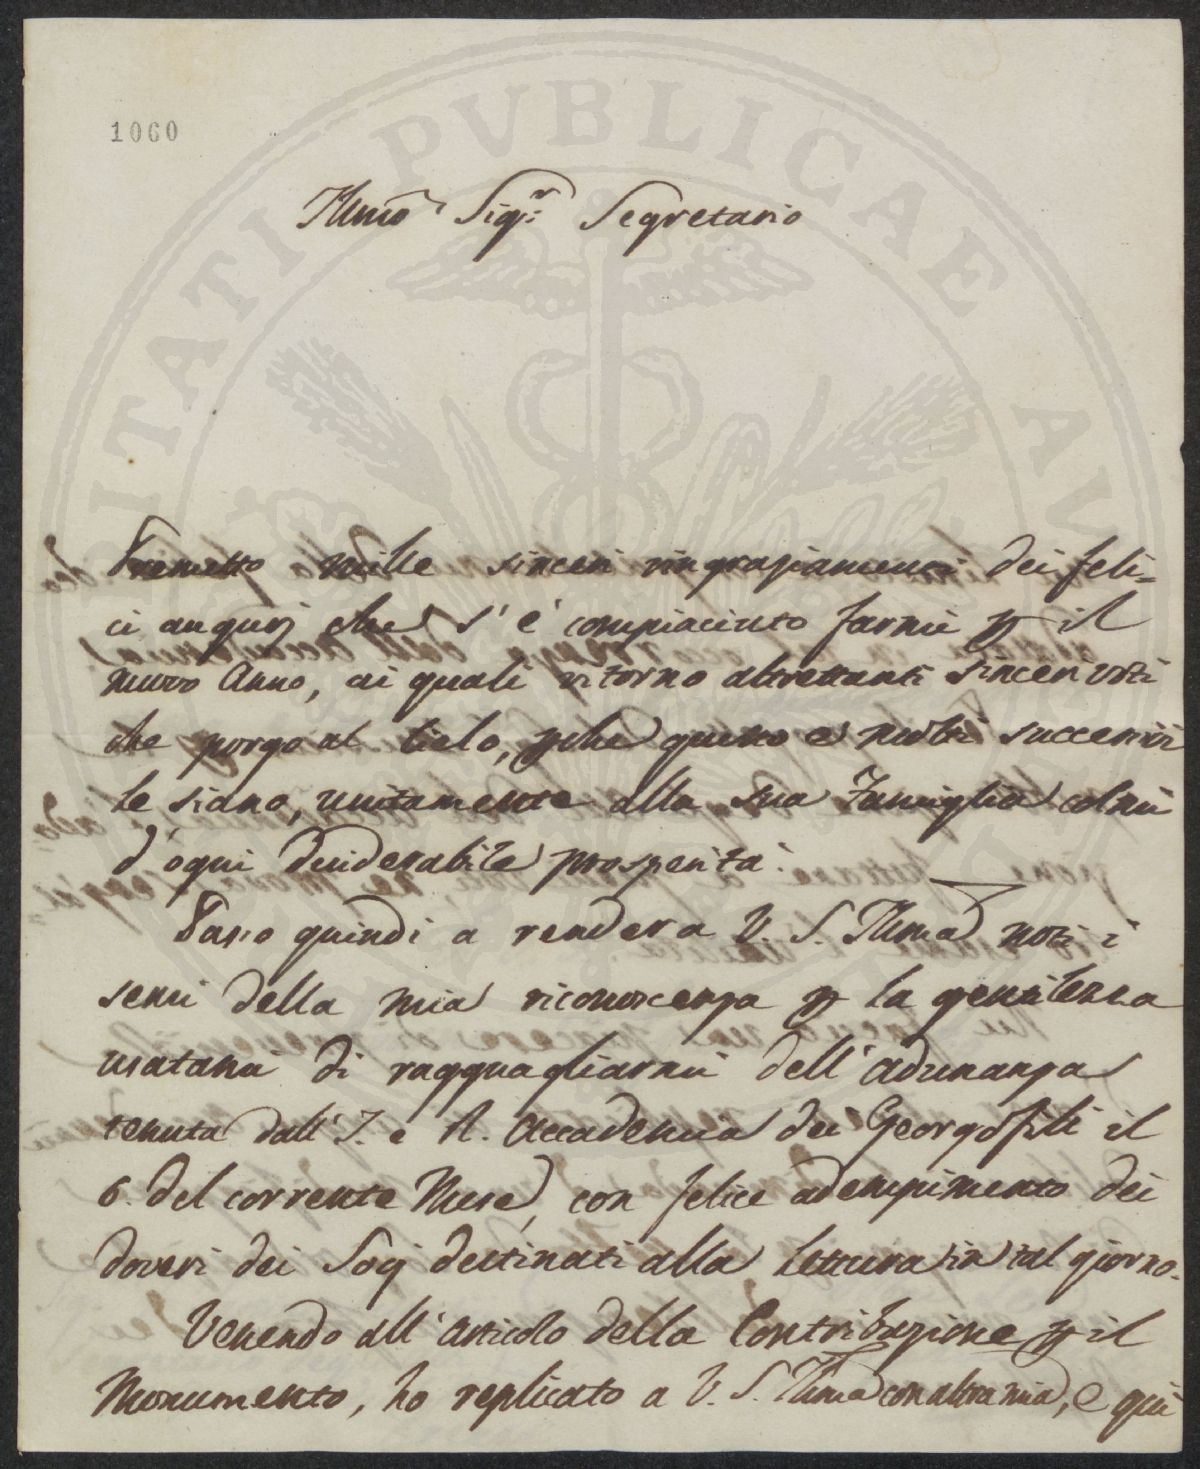 1060
PVBLICAE
Illmo Sigr: Segretario
Premetto mille sinceri ringraziamenti dei feli=
ci augurj che s'è compiaciuto farmi p il
nuovo Anno, ai quali ritorno altrettanti sinceri voti
che porgo al Cielo, pche questo e molti successivi
le siano, unitamente alla sua Famiglia colmi
d'ogni desiderabile prosperità.
Passo quindi a rendera V. S. Illma noti i
sensi della mia riconoscenza p la gentilezza
usatami di ragguagliarmi dell'adunanza
tenuta dall'I. e R. Accademia dei Georgofili il
6. del corrente Mese, con felice adempimento dei
doveri dei Socj destinati alla lettura in tal giorno.
Venendo all'articolo della Contribuzione p il
Monumento, ho replicato a V. S. Illma con altra mia, e qui